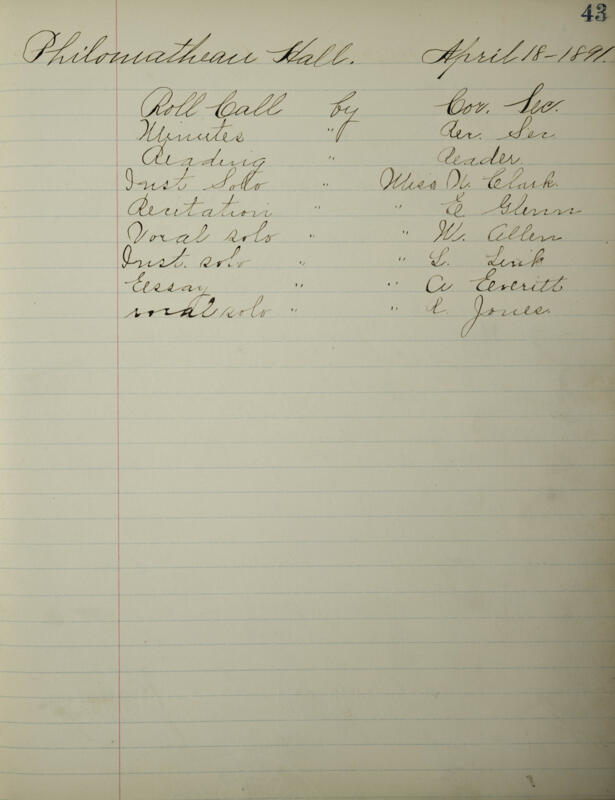 43
Philomathean Hall. April 18-1891.
Roll Call by Cor. Sec.
Minutes " Rec. Sec
Reading " Reader
Inst Solo " Miss N. Clark.
Recitation " " E Glenn
Vocal solo " " M. Allen
Inst. solo " " L. Link
Essay " " A Everitt
vocal solo " " R. Jones.